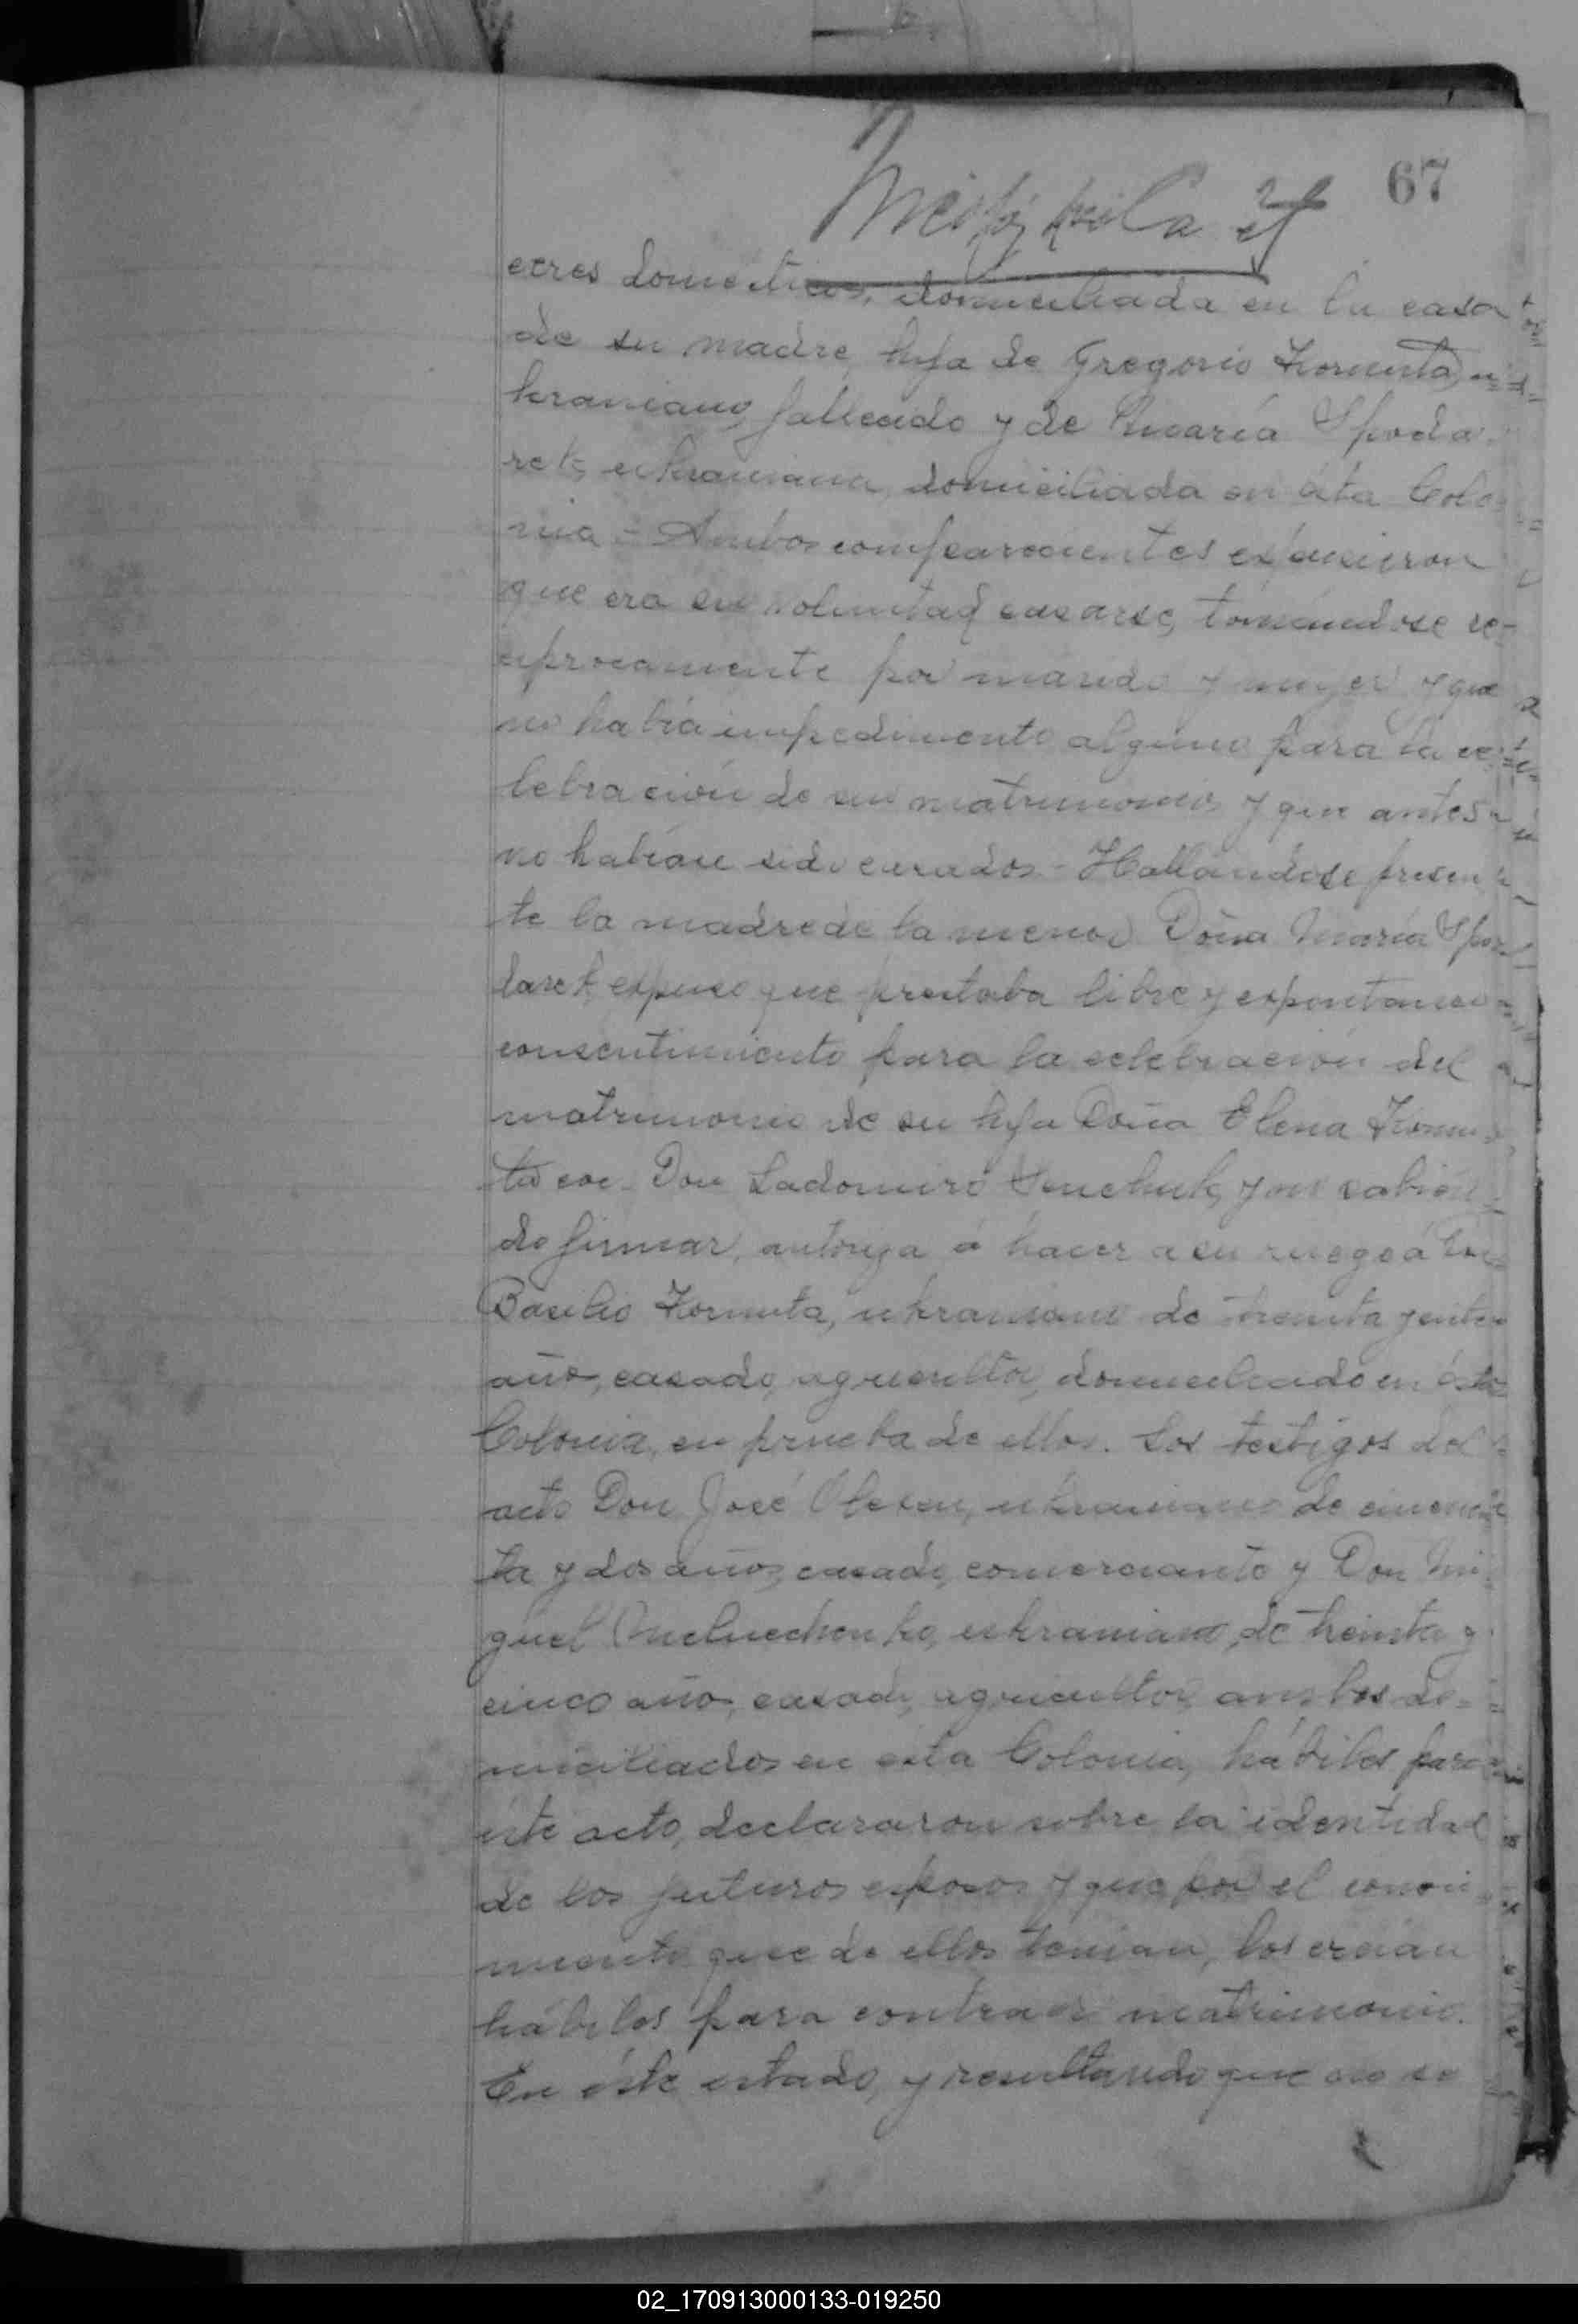 67
eeres domesticos, domiciliada en la casa
de su madre, hija de Gregorio Kornuta, u=
kraniano, fallecido y de María Spoda
rek, ukraniana, domiciliada en ésta Colo
nia - Ambos comparecientes expusieron
que era su voluntad casarse, tomándose re-
ciprocamente por marido y mujer y que
no había impedimento alguno para la ce
lebración de su matrimonio y que antes
no habían sido casados - Hallándose presen
te la madre de la menor Doña María Spo
darek, expuso que prestaba libre y espontaneo
consentimiento para la celebración del
matrimonio de su hija Doña Elena Kornu
ta con Don Ladomiro Senchuk, y no sabien
do firmar, autoriza á hacer a su ruego á Don
Basilio Kornuta, ukraniano de treinta y
años, casado, agricultor, domiciliado en ésta
Colonia, en prueba de ellos. Los testigos del
acto Don José ukraniano de cincuen
ta y dos años, casado, comerciante y Don Mi
guel ukraniano, de treinta y
cinco años, casado, agricultor, ambos do=
miciliados en esta Colonia, hábiles para
éste acto, declararon sobre la identidad
de los futuros esposos y que por el conoci
miento que de ellos tenian, los creían
hábiles para contraer matrimonio.
En éste estado, y resultando que no se
02_170913000133-019250